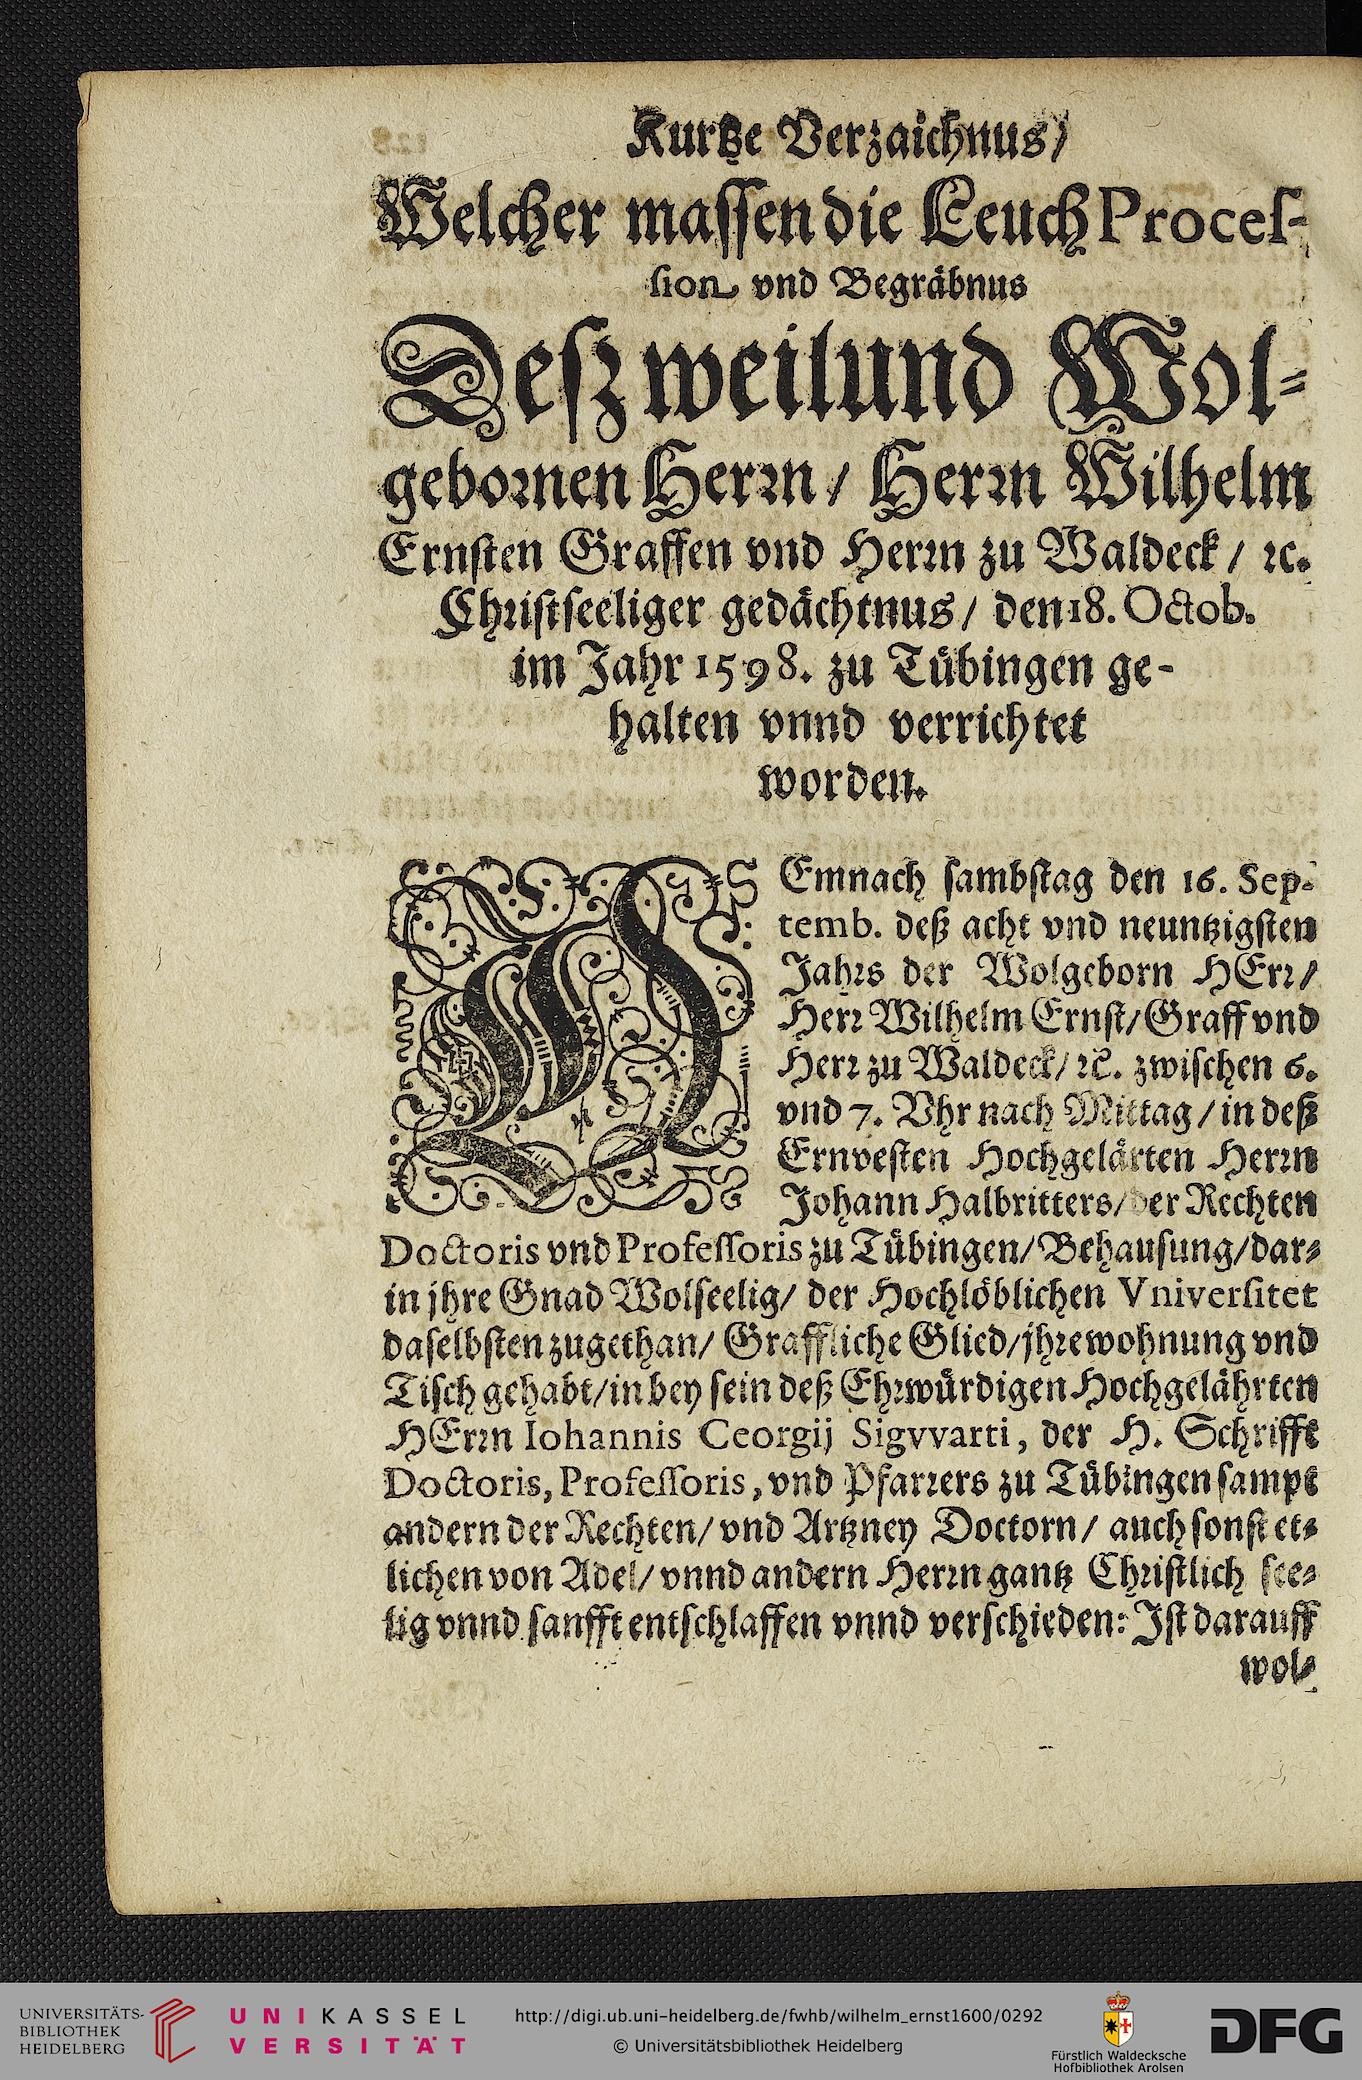 Kurtze Verzaichnus/
Welcher massen die Leuch Proces-
sion vnd Begräbnus
Desz weilund Wol-
gebornen Herrn / Herrn Wilhelm
Ernsten Graffen vnd Herrn zu Waldeck / ꝛc.
Christseeliger gedächtnus / den 18. Octob.
im Jahr 1598. zu Tübingen ge-
halten vnnd verrichtet
worden.
DEmnach sambstag den 16. Sep-
temb. deß acht vnd neuntzigsten
Jahrs der Wolgeborn HErr /
Herr Wilhelm Ernst / Graff vnd
Herr zu Waldeck / ꝛc. zwischen 6.
vnd 7. Vhr nach Mittag / in deß
Ernvesten Hochgelärten Herrn
Johann Halbritters / der Rechten
Doctoris vnd Professoris zu Tübingen / Behausung / dar-
in jhre Gnad Wolseelig / der Hochlöblichen Vniversitet
daselbsten zugethan / Graffliche Glied / jhre wohnung vnd
Tisch gehabt / in bey sein deß Ehrwürdigen Hochgelährten
HErrn Iohannis Ceorgij Sigvvarti, der H. Schrifft
Doctoris, Professoris, vnd Pfarrers zu Tübingen sampt
andern der Rechten / vnd Artzney Doctorn / auch sonst et-
lichen von Adel / vnnd andern Herrn gantz Christlich see-
lig vnnd sanfft entschlaffen vnnd verschieden: Ist darauff
wol-
UNIVERSITÄTS-
BIBLIOTHEK
HEIDELBERG
UNIKASSEL
VERSITÄT
http://digi.ub.uni-heidelberg.de/fwhb/wilhelm_ernst1600/0292
© Universitätsbibliothek Heidelberg
Fürstlich Waldecksche
Hofbibliothek Arolsen
DFG